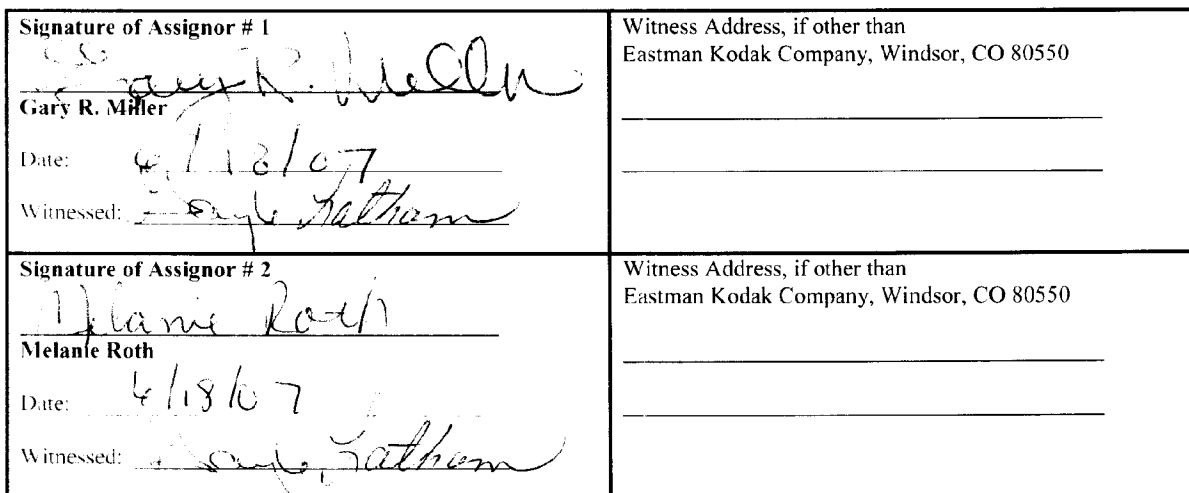 Signature of Assignor # 1
Gary R. Miller
Gary R. Miller
Date: 6/18/07
Witnessed: Gayle Latham
Witness Address, if other than
Eastman Kodak Company, Windsor, CO 80550
Signature of Assignor # 2
Melanie Roth
Melanie Roth
Date: 6/18/07
Witnessed: Gayle Latham
Witness Address, if other than
Eastman Kodak Company, Windsor, CO 80550